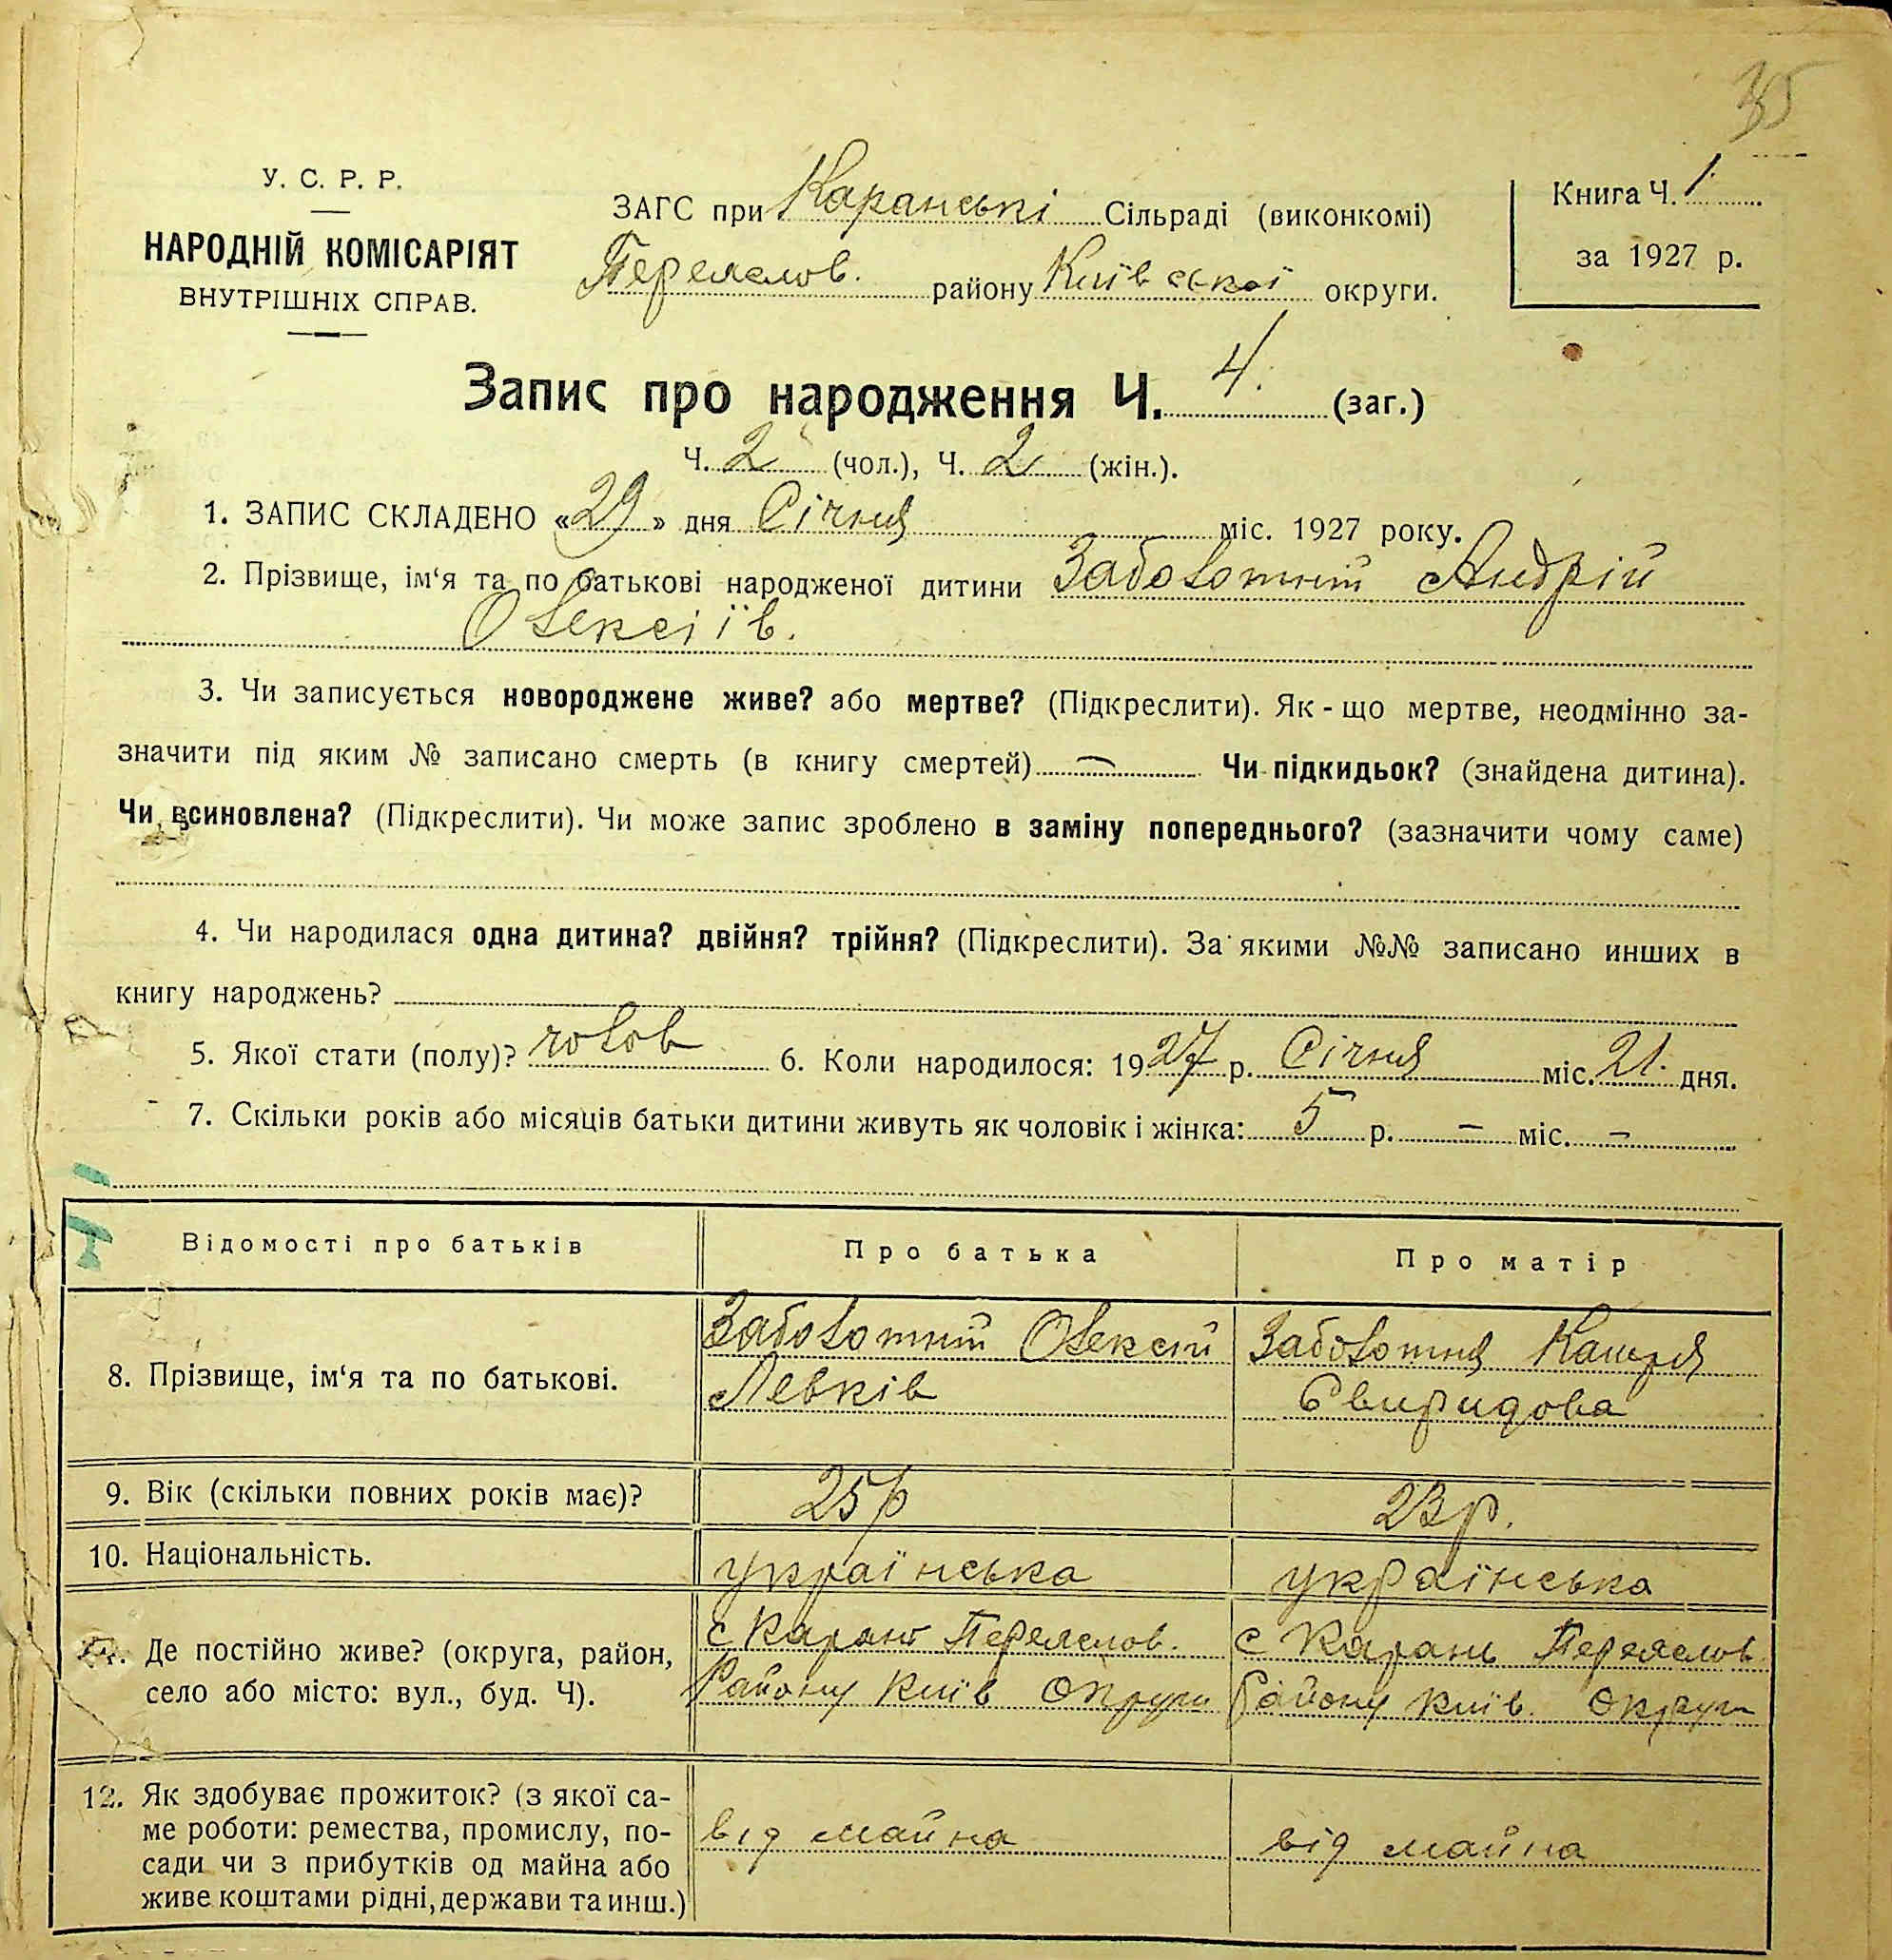 35
У. С. Р. Р.
НАРОДНІЙ КОМІСАРІЯТ
ВНУТРІШНІХ СПРАВ.
ЗАГС при Каранські Сільраді (виконкомі)
Переяслов. району Київської округи.
Книга Ч. 1
за 1927 р.
Запис про народження Ч. 4. (заг.)
Ч. 2 (чол.), Ч. 2 (жін.).
1. ЗАПИС СКЛАДЕНО «29» дня Січня міс. 1927 року.
2. Прізвище, ім‘я та по батькові народженої дитини Заболотній Андрій
Олексіїв.
3. Чи записується новороджене живе? або мертве? (Підкреслити). Як - що мертве, неодмінно за-
значити під яким № записано смерть (в книгу смертей) — Чи підкидьок? (знайдена дитина).
Чи всиновлена? (Підкреслити). Чи може запис зроблено в заміну попереднього? (зазначити чому саме)
4. Чи народилася одна дитина? двійня? трійня? (Підкреслити). За якими №№ записано инших в
книгу народжень?
5. Якої стати (полу)? чолов 6. Коли народилося: 1927 р. Січня міс. 21. дня.
7. Скільки років або місяців батьки дитини живуть як чоловік і жінка: 5 р. — міс. —
Відомості про батьків Про батька Про матір
8. Прізвище, ім‘я та по батькові.
Заболотній Олексій
Левків
Заболотня
Свиридова
9. Вік (скільки повних років має)? 25 р 23 р.
10. Національність. українська українська
11. Де постійно живе? (округа, район,
село або місто: вул., буд. Ч).
с Карань Переяслов.
Району Київ Округи
с Карань Переяслов
Району Київ. Округи
12. Як здобуває прожиток? (з якої са-
ме роботи: ремества, промислу, по-
сади чи з прибутків од майна або
живе коштами рідні, держави та инш.)
від майна
від майна